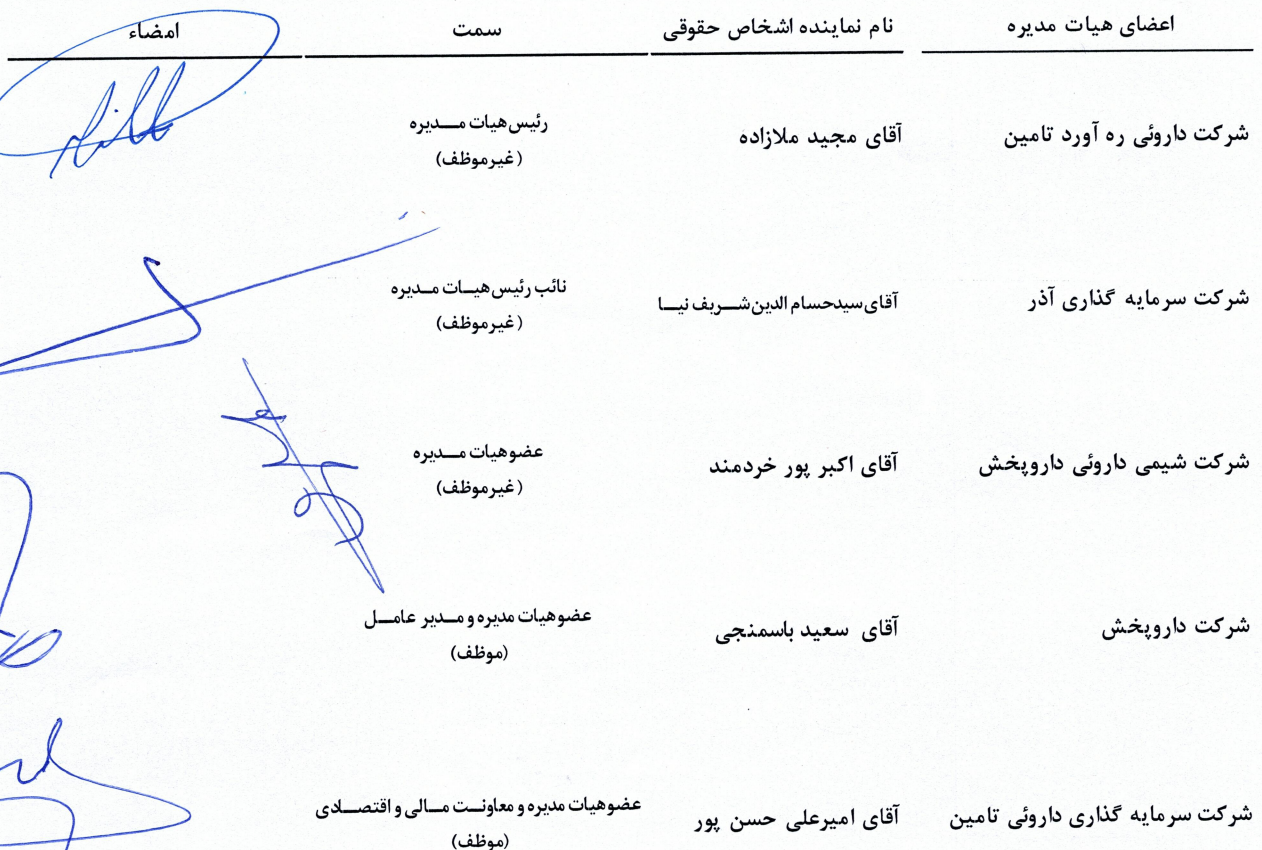 اعضای هیات مدیره نام نماینده اشخاص حقوقی سمت امضاء
شرکت داروئی ره آورد تامین آقای مجید ملازاده رئیس هیات مدیره
(غیرموظف)
شرکت سرمایه گذاری آذر آقای سیدحسام الدین شریف نیا نائب رئیس هیات مدیره
(غیرموظف)
شرکت شیمی داروئی داروپخش آقای اکبر پور خردمند عضوهیات مدیره
(غیرموظف)
شرکت داروپخش آقای سعید باسمنجی عضوهیات مدیره و مدیر عامل
(موظف)
شرکت سرمایه گذاری داروئی تامین آقای امیرعلی حسن پور عضوهیات مدیره و معاونت مالی و اقتصادی
(موظف)